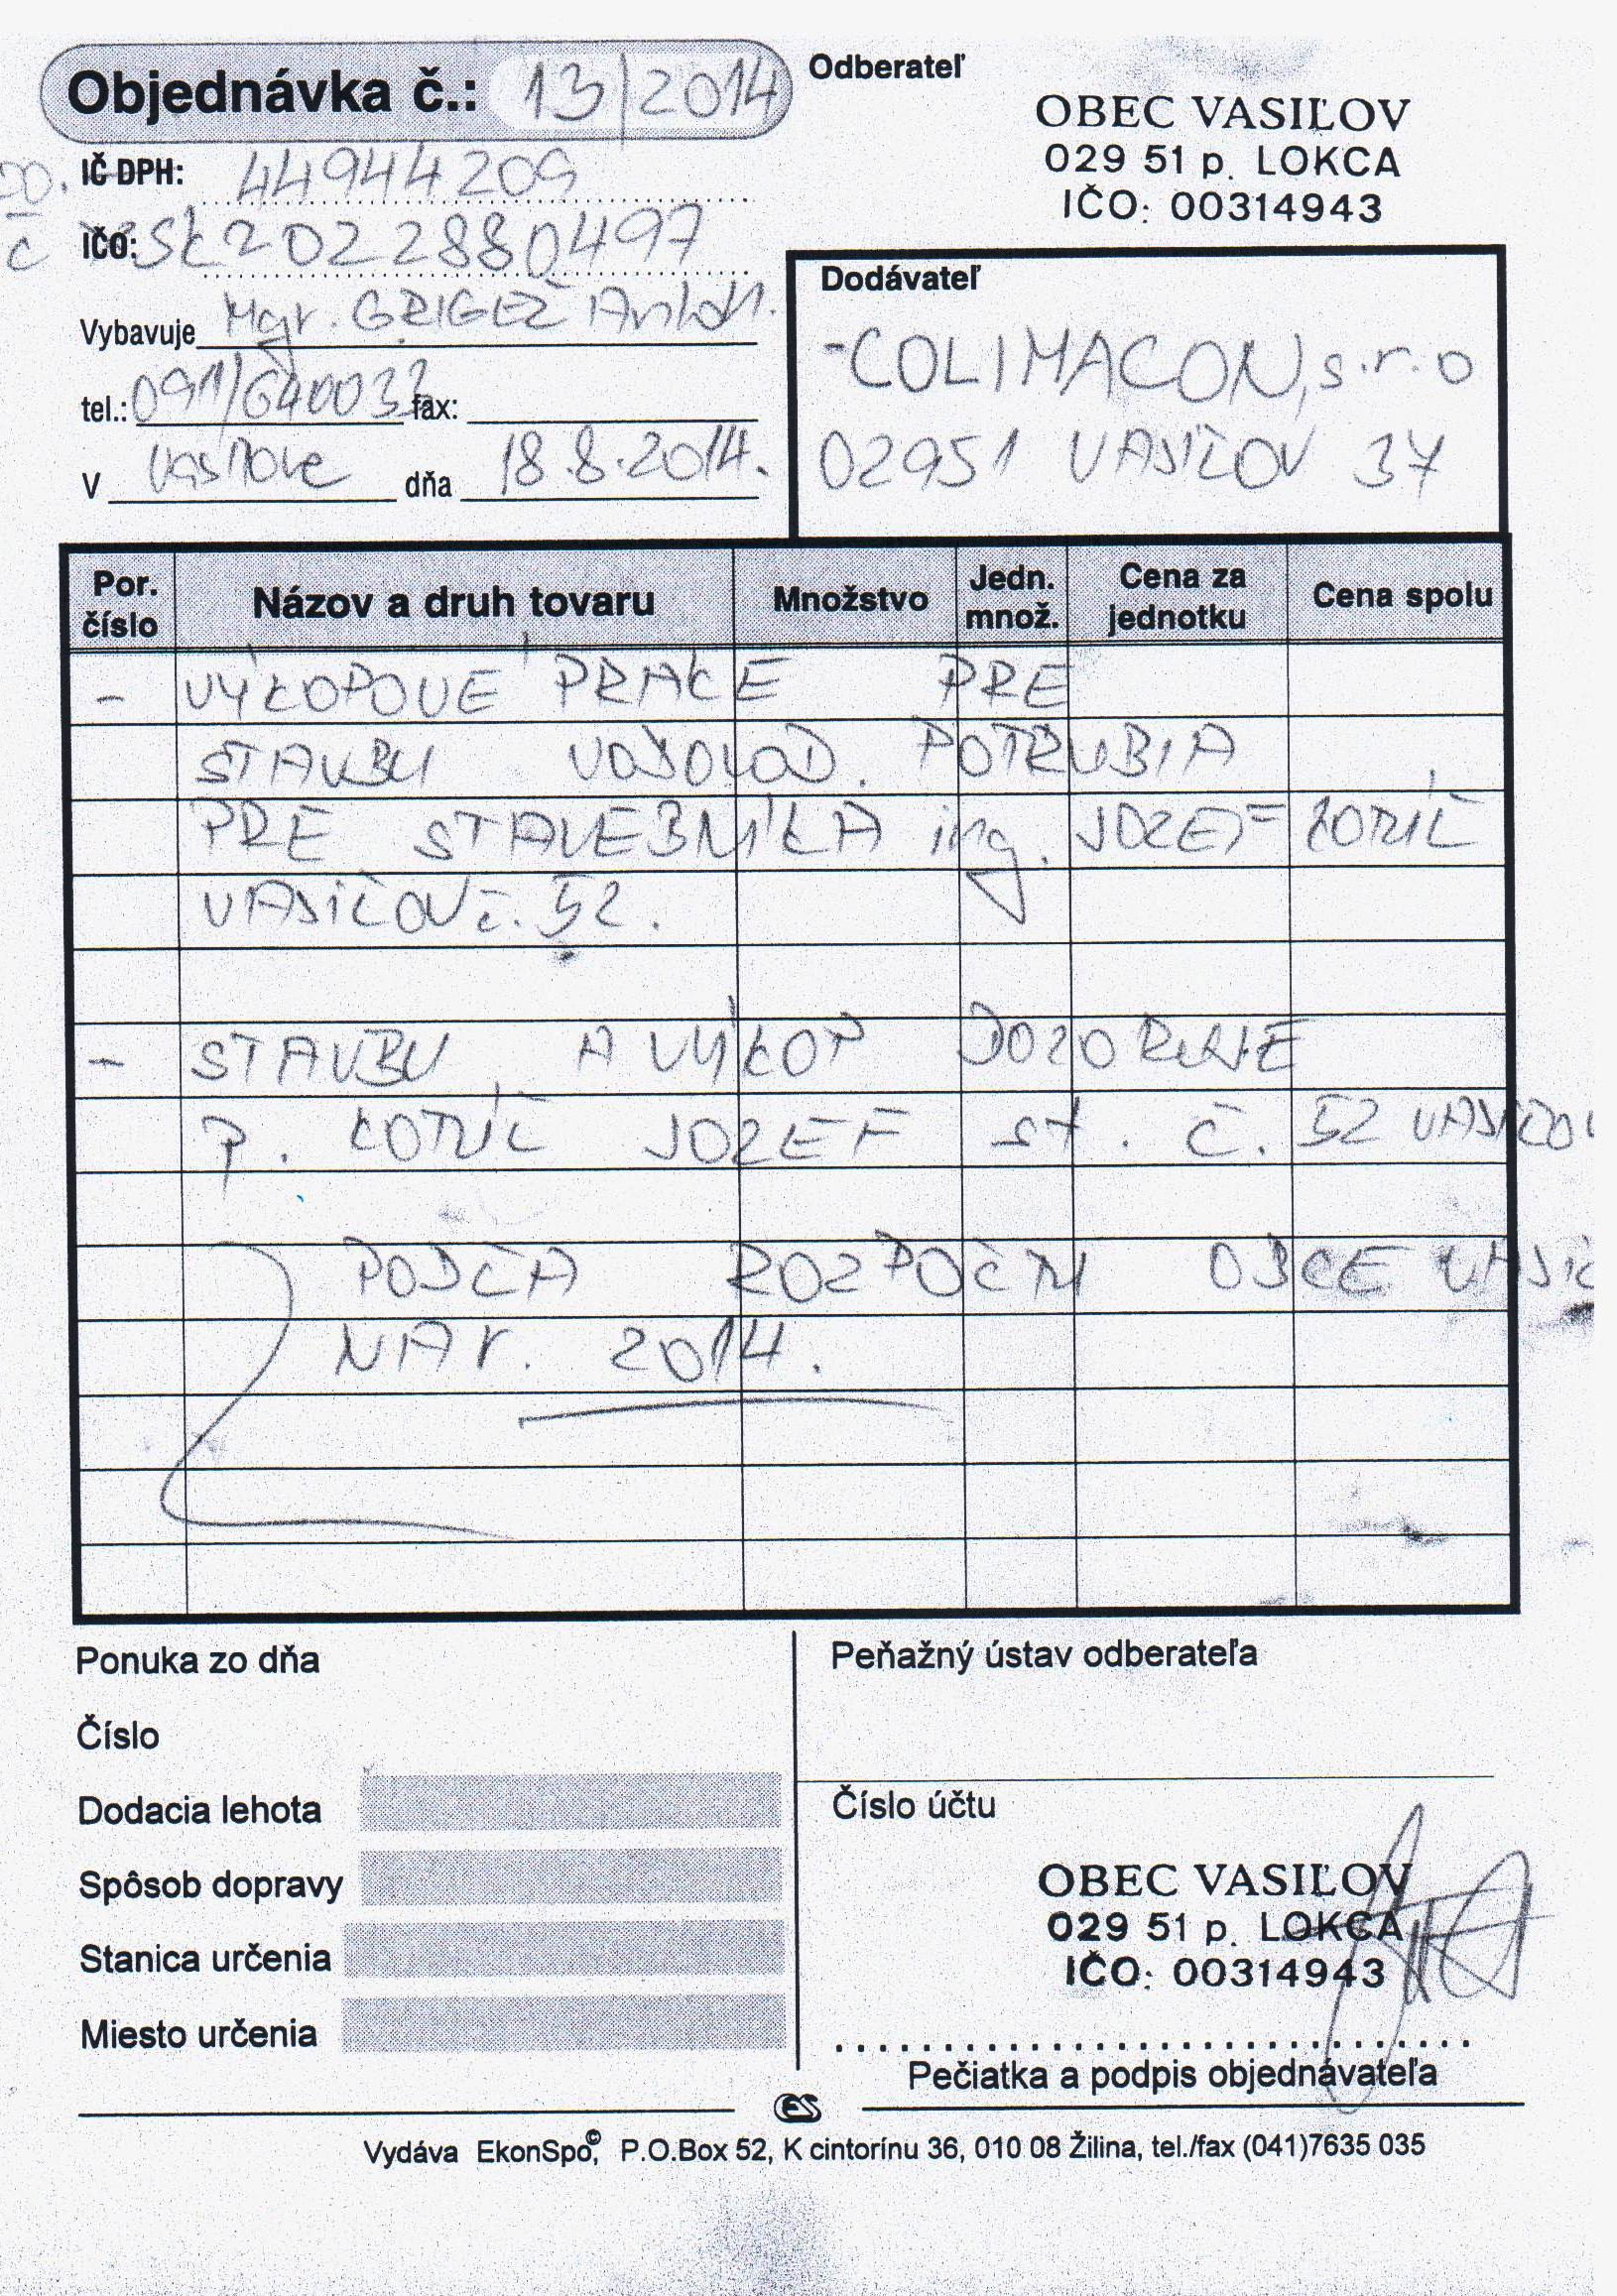 Objednávka č.: 13/2014
Odberateľ
OBEC VASIĽOV
029 51 p. LOKCA
IČO: 00314943
IČ DPH: 44944209
IČO: SK2022880497
Vybavuje Mgr. GRIGEĽ Anton.
tel.: 091/640033 fax:
V Vasiľove dňa 18.8.2014.
Dodávateľ
-COLIMACON, s.r.o
02951 VASIĽOV 37
Por. číslo Názov a druh tovaru Množstvo Jedn. množ. Cena za jednotku Cena spolu
- VÝKOPOVÉ PRÁCE PRE
STAVBU VODOVOD. POTRUBIA
PRE STAVEBNÍKA ing. JOZEF
VASIĽOV č. 52.
- STAVBU A VÝKOP
p. JOZEF st. č. 52 VASIĽOV
PODĽA ROZPOČTU OBCE
NA r. 2014.
Ponuka zo dňa
Číslo
Dodacia lehota
Spôsob dopravy
Stanica určenia
Miesto určenia
Peňažný ústav odberateľa
Číslo účtu
OBEC VASIĽOV
029 51 p. LOKCA
IČO: 00314943
Pečiatka a podpis objednávateľa
Vydáva EkonSpo©, P.O.Box 52, K cintorínu 36, 010 08 Žilina, tel./fax (041)7635 035